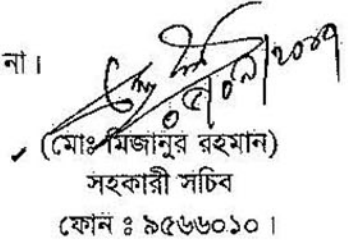 না।
(মোঃ মিজানুর রহমান)
সহকারী সচিব
ফোন ঃ ৯৫৬৬০১০।